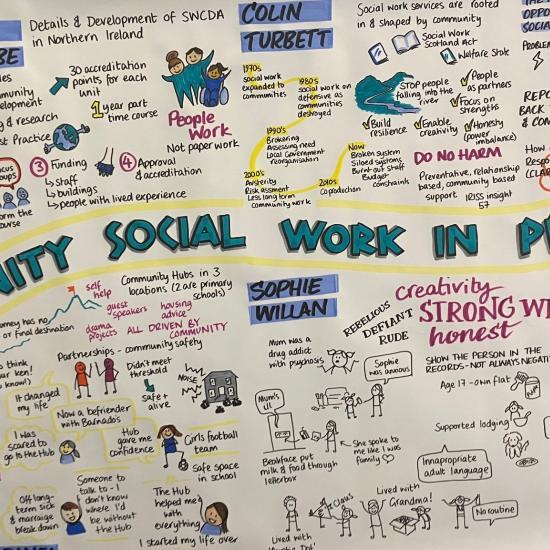 Details & Development of SWCDA
in Northern Ireland
30 accreditation
points for each
unit
1 year part
time course
People
Work
Not paper work
& research
st Practice
3 Funding
↳ staff
↳ buildings
↳ people with lived experience
4 Approval
& accreditation
COLIN
TURBETT
1970s
social work
expanded to
communities
1980s
social work on
defensive as
communities
destroyed
1990's
Brokering
Assessing need
Local Government
reorganisation
2000's
Austerity
Risk assment
Less long term
community work
2010s
Coproduction
Now
Broken system
Siloed systems
Burnt out staff
Budget
constraints
Social work services are rooted
in & shaped by community
Social Work
Scotland Act
Welfare State
STOP people
falling into the
river
People
as partners
Focus on
strengths
Build
resilience
Enable
creativity
Honesty
(power
imbalance)
DO NO HARM
Preventative, relationship
based, community based
support
IRISS insight
57
NITY SOCIAL WORK IN P
self
help
Community Hubs in 3
locations (2 are primary
schools)
guest
speakers
housing
advice
drama
projects
ALL DRIVEN BY
COMMUNITY
journey has no
or final destination
Partnerships - community safety
Didn't meet
threshold
safe +
alive
NOISE
It changed
my life
Now a befriender
with Barnado's
I was
scared to
go to the Hub
Hub
gave me
confidence
Girls football
team
Safe space
in school
Off long-
term sick
& marraige
break down
Someone to
talk to - I
don't know
where I'd
be without
the Hub
The Hub
helped me
with
everything
I started my life over
SOPHIE
WILLAN
REBELLIOUS
DEFIANT
RUDE
Creativity
STRONG WI
honest
Mum was a
drug addict
with psychosis
Sophie
was anxious
SHOW THE PERSON IN THE
RECORDS - NOT ALWAYS NEGATI
Age 17 - own flat
Mum's
ill
She spoke to
me like I was
family
Breakface put
milk & food through
letterbox
Supported lodging
Innapropriate
adult language
Lived with
Grandma!
No routine
Lived with